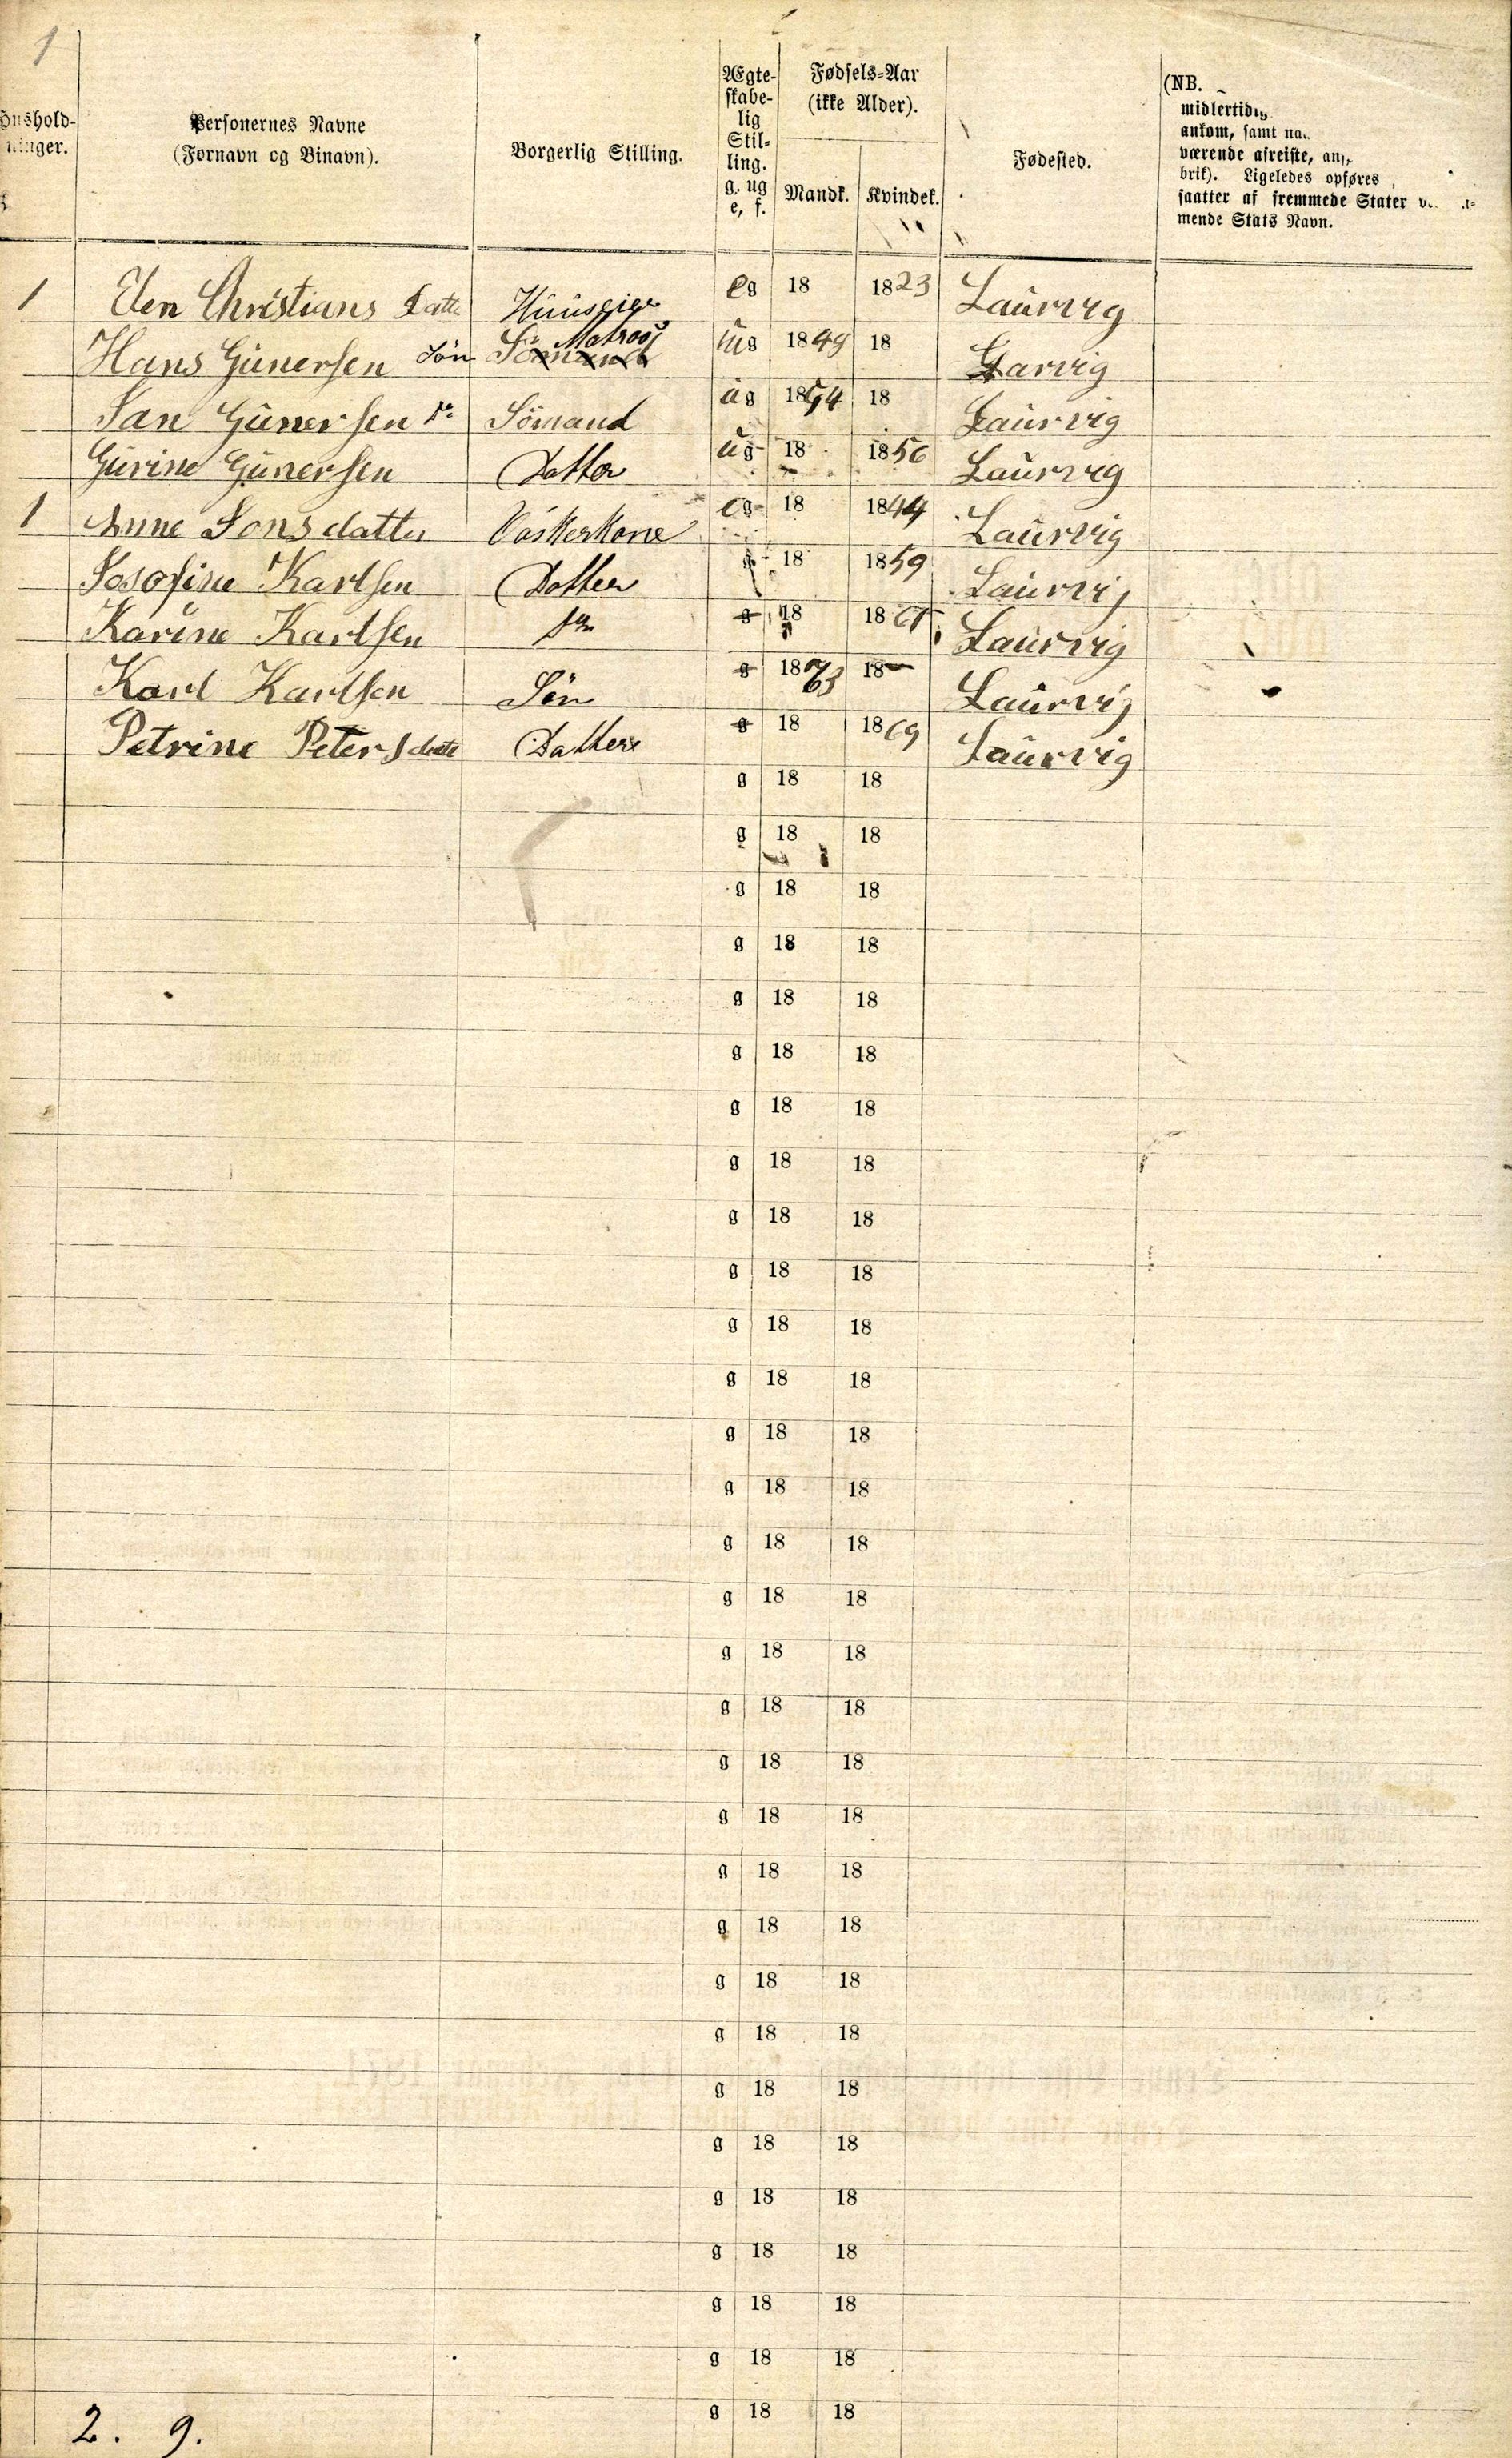 1
Personernes Navne
(Fornavn og Binavn).
Borgerlig Stilling.
Ægte-
skabe-
lig
Stil-
ling.
g. ug
e, f.
Fødsels-Aar
(ikke Alder).
Mandk. Kvindek.
Fødested.
(NB.
ankom, samt
værende afreiste,
brik). Ligeledes opføres
saatter af fremmede Stater
mende Stats Navn.
1 Elen Christians Datte Huuseier eg 18 1823 Laurvig
Hans Gunersen Søn Matros Sømand ug 1849 18 Larvig
Jan Gunersen do Sömand ug 1854 18 Laurvig
Gurine Gunersen Datter ug 18 1856 Laurvig
1 Anne Jonsdatter Vaskerkone eg 18 1844 Laurvig
Josofine Karlsen Datter g 18 1859 Laurvig
Karine Karlsen do g 18 1861 Laurvig
Karl Karlsen Sön g 1863 18 Laurvig
Petrine Petersdatte Datter g 18 1869 Laurvig
g 18 18
g 18 18
g 18 18
g 18 18
g 18 18
g 18 18
g 18 18
g 18 18
g 18 18
g 18 18
g 18 18
g 18 18
g 18 18
g 18 18
g 18 18
g 18 18
g 18 18
g 18 18
g 18 18
g 18 18
g 18 18
g 18 18
g 18 18
g 18 18
g 18 18
g 18 18
g 18 18
g 18 18
g 18 18
g 18 18
g 18 18
2. 9.